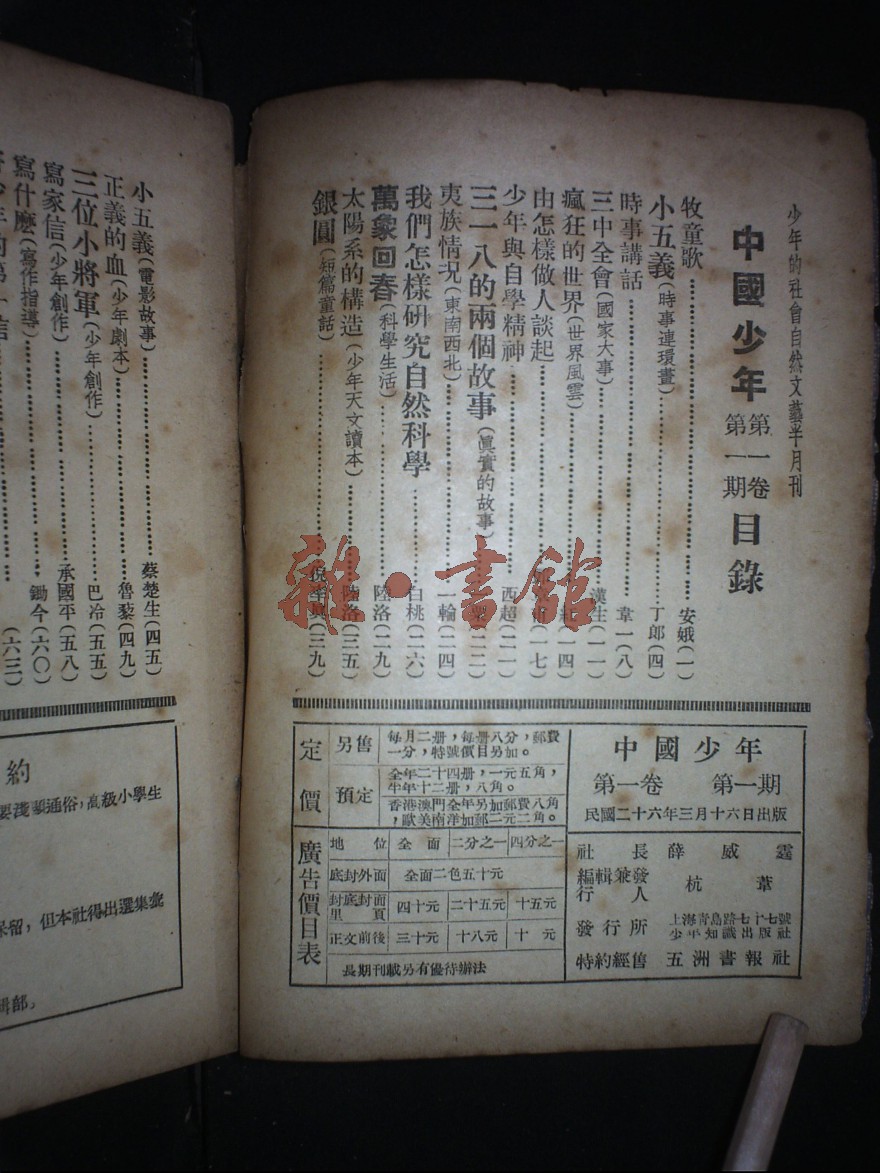 少年的社會自然文藝半月刊
中國少年 第一卷 第一期 目錄
牧童歌……安娥(一)
小五義(時事連環畫)……丁郎(四)
時事講話……韋一(八)
三中全會(國家大事)……漢生(一一)
瘋狂的世界(世界風雲)……(一四)
由怎樣做人談起……(一七)
少年與自學精神……西超(二一)
三一八的兩個故事(眞實的故事)……(二二)
夷族情况(東南西北)……一輪(二四)
我們怎樣研究自然科學……白桃(二六)
萬象回春(科學生活)……陸洛(二九)
太陽系的構造(少年天文讀本)……陸洛(三五)
銀圓(短篇童話)……(三九)
小五義(電影故事)……蔡楚生(四五)
正義的血(少年劇本)……魯藜(四九)
三位小將軍(少年創作)……巴冷(五五)
寫家信(少年創作)……承國平(五八)
寫什麽(寫作指導)……鋤今(六〇)
第一信……(六三)
中國少年
第一卷 第一期
民國二十六年三月十六日出版
社長 薛威霆
編輯兼發行人 杭葦
發行所 上海青島路七十七號 少年知識出版社
特約經售 五洲書報社
定價
另售 每月二册,每册八分,郵費一分,特號價目另加。
預定 全年二十四册,一元五角,半年十二册,八角。
香港澳門全年另加郵費八角,歐美南洋加郵二元二角。
廣告價目表
地位 全面 二分之一 四分之一
底封外面 全面二色五十元
封底封面里頁 四十元 二十五元 十五元
正文前後 三十元 十八元 十元
長期刊載另有優待辦法
約
淺顯通俗,高級小學生
保留,但本社得出選集彙
輯部。
雜·書館